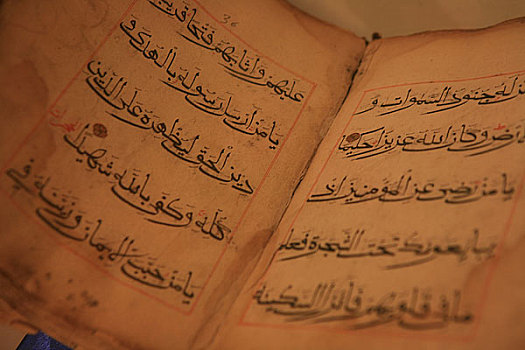 من له جنود السموات و
لارض وكان الله عزيزا حكيما
يا من رضى عن المؤمنين اذ
يبايعونك تحت الشجرة فعلم
ما في قلوبهم فانزل السكينة
36
عليهم واثابهم فتحا قريبا
يا من ارسل رسوله بالهدى و
دين الحق ليظهره على الدين
كله وكفى بالله شهيدا
يا من حبب الايمان وزينه في